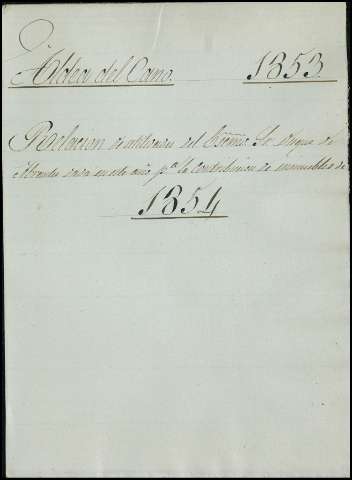 Aldea del Cano. 1853.
Relacion de utilidades del Escmo. Sr. Duque de
Abrantes dada en este año pa. la Contribucion de inmuebles de
1854